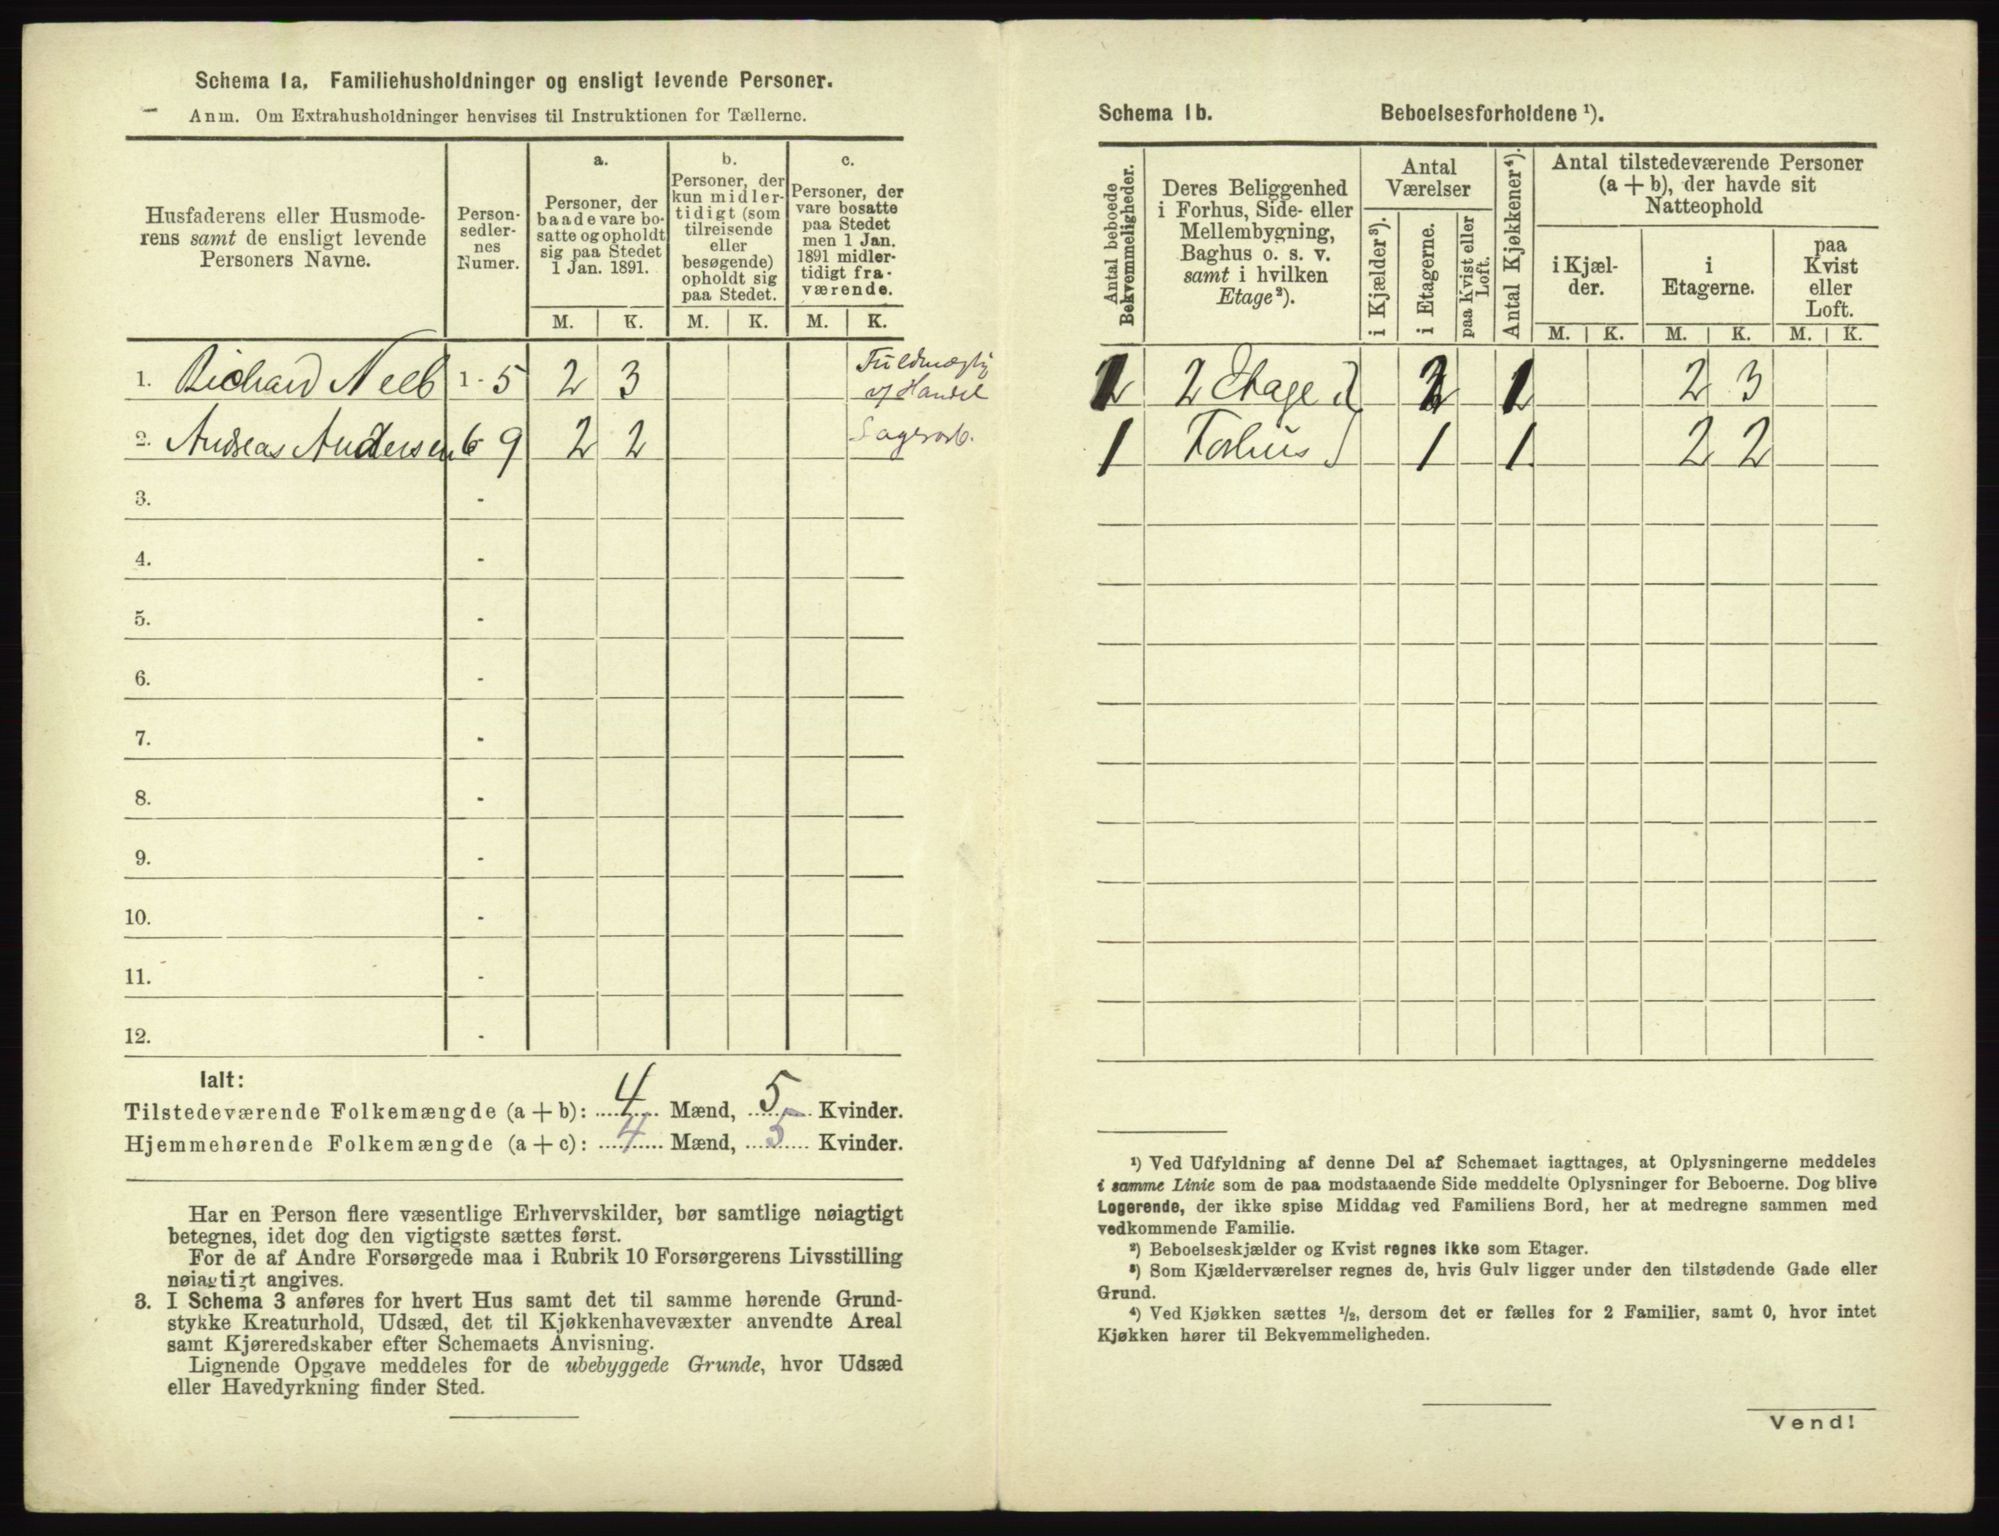 Schema 1a. Familiehusholdninger og ensligt levende Personer.
Anm. Om Extrahusholdninger henvises til Instruktionen for Tællerne.
Husfaderens eller Husmode-
rens samt de ensligt levende
Personers Navne.
Person-
sedler-
nes
Numer.
a.
Personer, der
baade vare bo-
satte og opholdt
sig paa Stedet
1 Jan. 1891.
b.
Personer, der
kun midler-
tidigt (som
tilreisende
eller
besøgende)
opholdt sig
paa Stedet.
c.
Personer, der
vare bosatte
paa Stedet
men 1 Jan.
1891 midler-
tidigt fra-
værende.
M. K. M. K. M. K.
1. Richard Neeb 1-5 2 3 Fuldmægtig
v/ Handel
2. Andreas Andersen 6-9 2 2 Lagerarb.
3. -
4. -
5. -
6. -
7. -
8. -
9. -
10. -
11. -
12. -
Ialt:
Tilstedeværende Folkemængde (a + b): 4 Mænd, 5 Kvinder.
Hjemmehørende Folkemængde (a + c): 4 Mænd, 5 Kvinder.
Har en Person flere væsentlige Erhvervskilder, bør samtlige nøiagtigt
betegnes, idet dog den vigtigste sættes først.
For de af Andre Forsørgede maa i Rubrik 10 Forsørgerens Livsstilling
nøiagtigt angives.
3. I Schema 3 anføres for hvert Hus samt det til samme hørende Grund-
stykke Kreaturhold, Udsæd, det til Kjøkkenhavevæxter anvendte Areal
samt Kjøreredskaber efter Schemaets Anvisning.
Lignende Opgave meddeles for de ubebyggede Grunde, hvor Udsæd
eller Havedyrkning finder Sted.
Schema 1b. Beboelsesforholdene ¹).
Antal beboede
Bekvemmeligheder.
Deres Beliggenhed
i Forhus, Side- eller
Mellembygning,
Baghus o. s. v.
samt i hvilken
Etage ²).
Antal
Værelser
i Kjælder ³).
i Etagerne.
paa Kvist eller
Loft.
Antal Kjøkkener ⁴).
Antal tilstedeværende Personer
(a + b), der havde sit
Natteophold
i Kjæl-
der.
i
Etagerne.
paa
Kvist
eller
Loft.
M. K. M. K. M. K.
2 Etage 1 2 3
1 Forhus 1 1 2 2
¹) Ved Udfyldning af denne Del af Schemaet iagttages, at Oplysningerne meddeles
i samme Linie som de paa modstaaende Side meddelte Oplysninger for Beboerne. Dog blive
Logerende, der ikke spise Middag ved Familiens Bord, her at medregne sammen med
vedkommende Familie.
²) Beboelseskjælder og Kvist regnes ikke som Etager.
³) Som Kjælderværelser regnes de, hvis Gulv ligger under den tilstødende Gade eller
Grund.
⁴) Ved Kjøkken sættes ½, dersom det er fælles for 2 Familier, samt 0, hvor intet
Kjøkken hører til Bekvemmeligheden.
Vend!